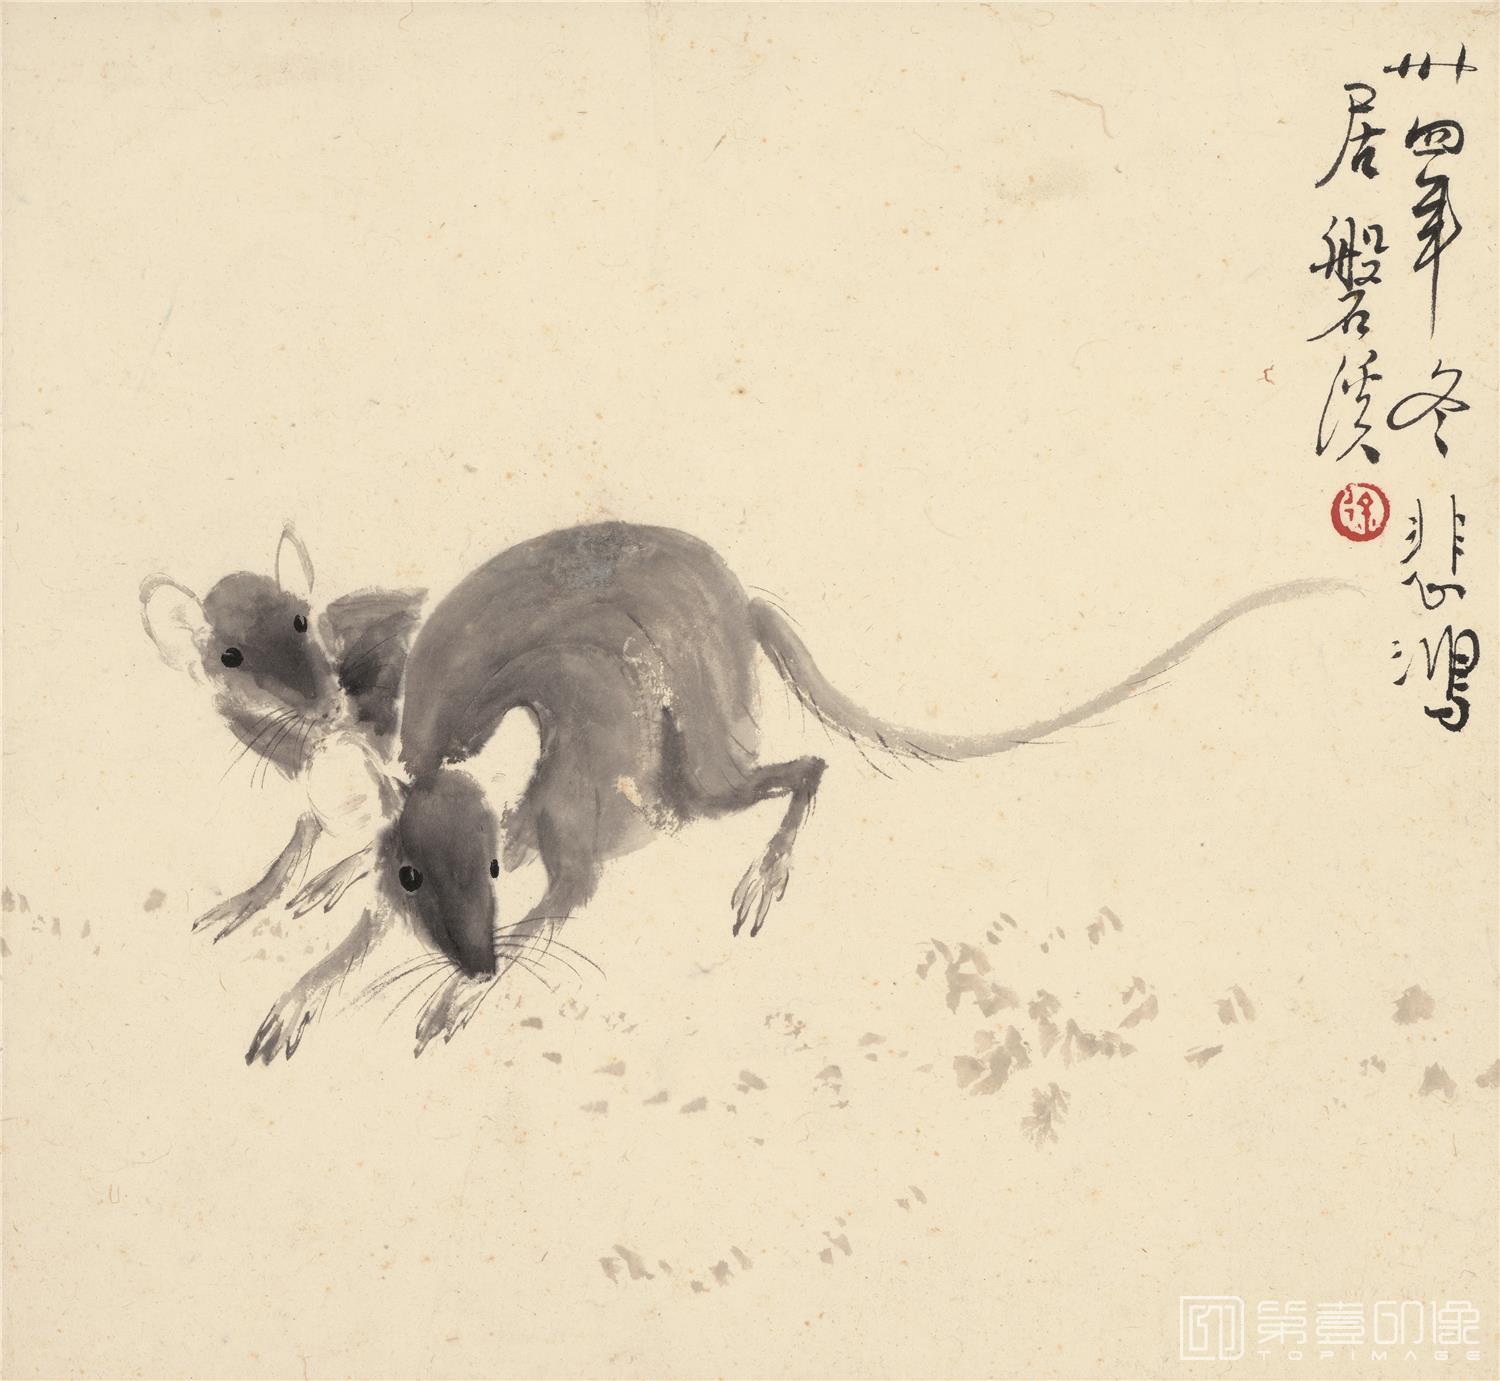 卅四年冬悲鴻
居磐溪
徐
第壹印像
TOPIMAGE